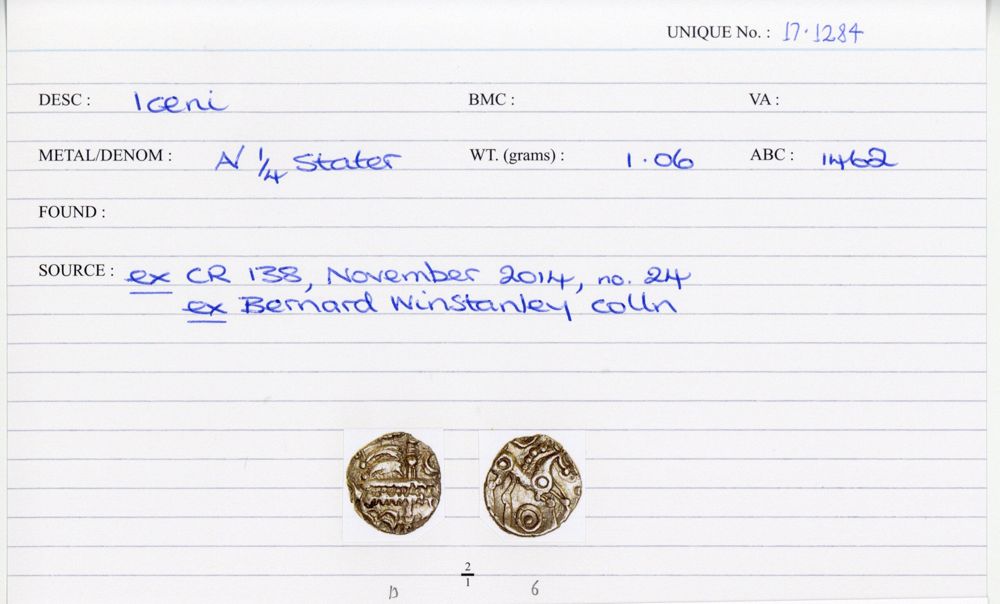 UNIQUE No. : 17.1284
DESC : Iceni BMC : VA :
METAL/DENOM : N 1/4 Stater WT. (grams) : 1.06 ABC : 1462
FOUND :
SOURCE : ex CR 138, November 2014, no. 24
ex Bernard Winstanley colln
2/1
D 6